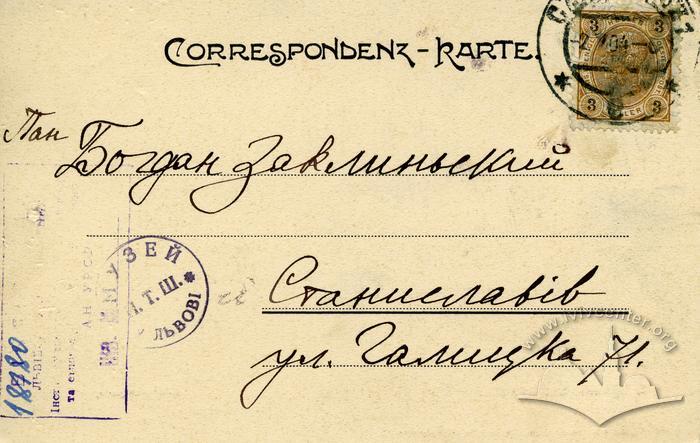 CORRESPONDENZ-KARTE.
3 3
3 3
Пан
Богдан Заклиньский
МУЗЕЙ
Н. Т. Ш.
ЛЬВОВІ
Станиславів
ул. Галицка 71.
18780
ЛЬВІВ
АН УРСР
Інст.
та
www.lvivcenter.org